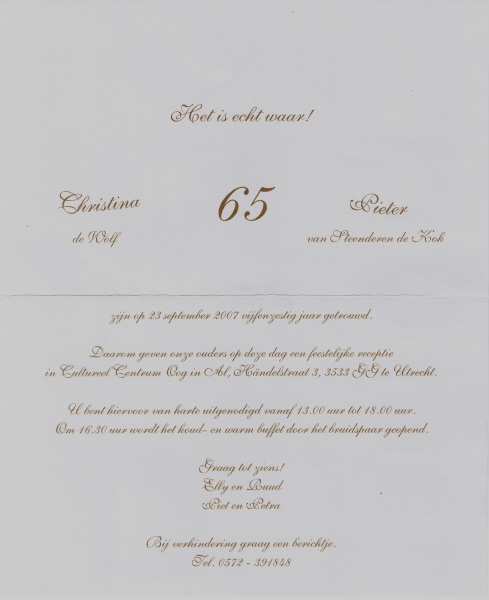 Het is echt waar!
Christina 65 Pieter
de Wolf van Steenderen de Kok
zijn op 23 september 2007 vijfenzestig jaar getrouwd.
Daarom geven onze ouders op deze dag een feestelijke receptie
in Cultureel Centrum Oog in Al, Händelstraat 3, 3533 GG te Utrecht.
U bent hiervoor van harte uitgenodigd vanaf 13.00 uur tot 18.00 uur.
Om 16.30 uur wordt het koud- en warm buffet door het bruidspaar geopend.
Graag tot ziens!
Elly en Ruud
Piet en Petra
Bij verhindering graag een berichtje.
Tel. 0572 - 391848